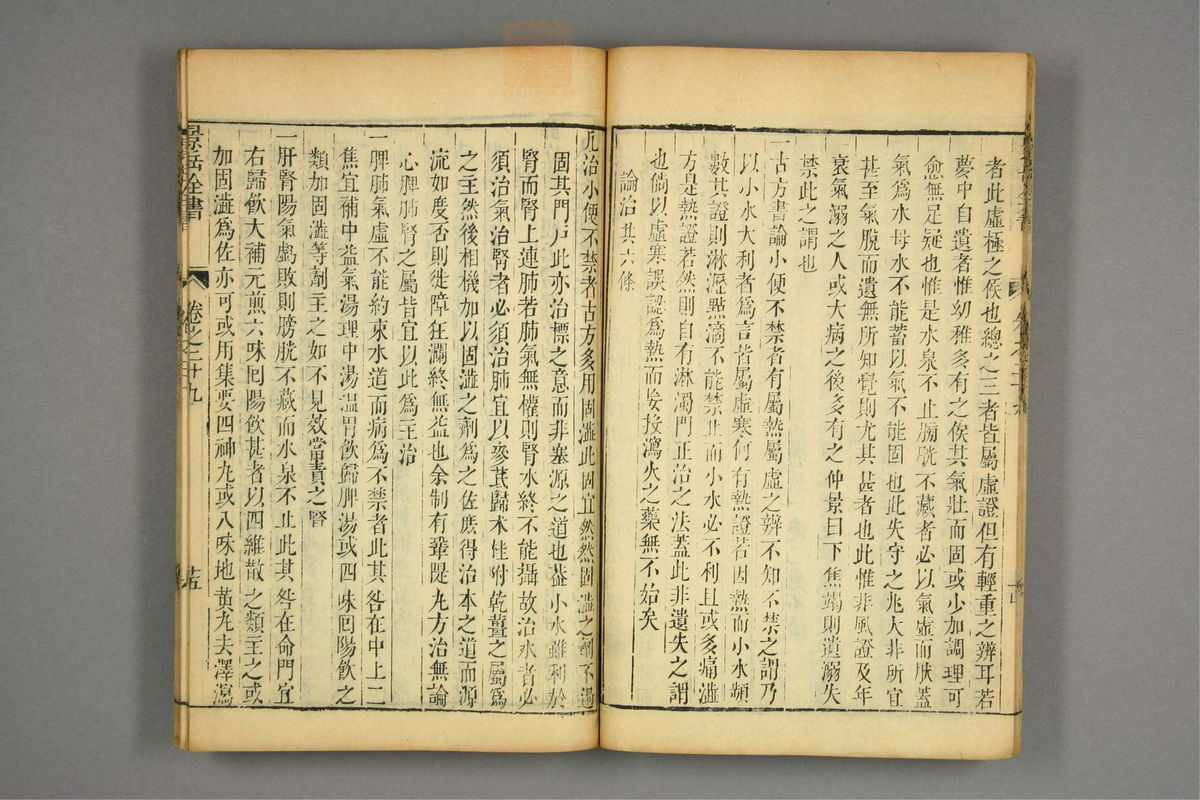 者此虛極之候也總之三者皆屬虛證但有輕重之辨耳若
夢中自遺者惟幼稚多有之俟其氣壯而固或少加調理可
愈無足疑也惟是水泉不止膀胱不藏者必以氣虛而然蓋
氣爲水母水不能蓄以氣不能固也此失守之兆大非所宜
甚至氣脫而遺無所知覺則尤其甚者也此惟非風證及年
衰氣溺之人或大病之後多有之仲景曰下焦竭則遺溺失
禁此之謂也
一古方書論小便不禁者有屬熱屬虛之辨不知不禁之謂乃
以小水大利者爲言皆屬虛寒何有熱證若因熱而小水頻
數其證則淋瀝點滴不能禁止而小水必不利且或多痛澁
方是熱證若然則自有淋濁門正治之法蓋此非遺失之謂
也倘以虛寒誤認爲熱而妄投瀉火之藥無不殆矣
論治共六條
凡治小便不禁者古方多用固澁此固宜然然固澁之劑不過
固其門戶此亦治標之意而非塞源之道也葢小水雖利於
腎而腎上連肺若肺氣無權則腎水終不能攝故治水者必
須治氣治腎者必須治肺宜以參芪歸朮桂附乾薑之屬爲
之主然後相機加以固澁之劑爲之佐庶得治本之道而源
流如度否則徒障狂瀾終無益也余制有鞏隄丸方治無論
心脾肺腎之屬皆宜以此爲主治
一脾肺氣虛不能約束水道而病爲不禁者此其咎在中上二
焦宜補中益氣湯理中湯溫胃飲歸脾湯或四味回陽飲之
類加固澁等劑主之如不見效當責之腎
一肝腎陽氣虧敗則膀胱不藏而水泉不止此其咎在命門宜
右歸飲大補元煎六味回陽飲甚者以四維散之類主之或
加固澁爲佐亦可或用集要四神丸或八味地黃丸去澤瀉
景岳全書
卷之二十九